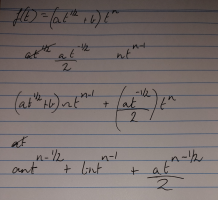 f(t) = (at^1/2 + b) t^n
at^-1/2 / 2 nt^n-1
(at^1/2 + b) nt^n-1 + (at^-1/2 / 2) t^n
at
ant^n-1/2 + bnt^n-1 + at^n-1/2 / 2